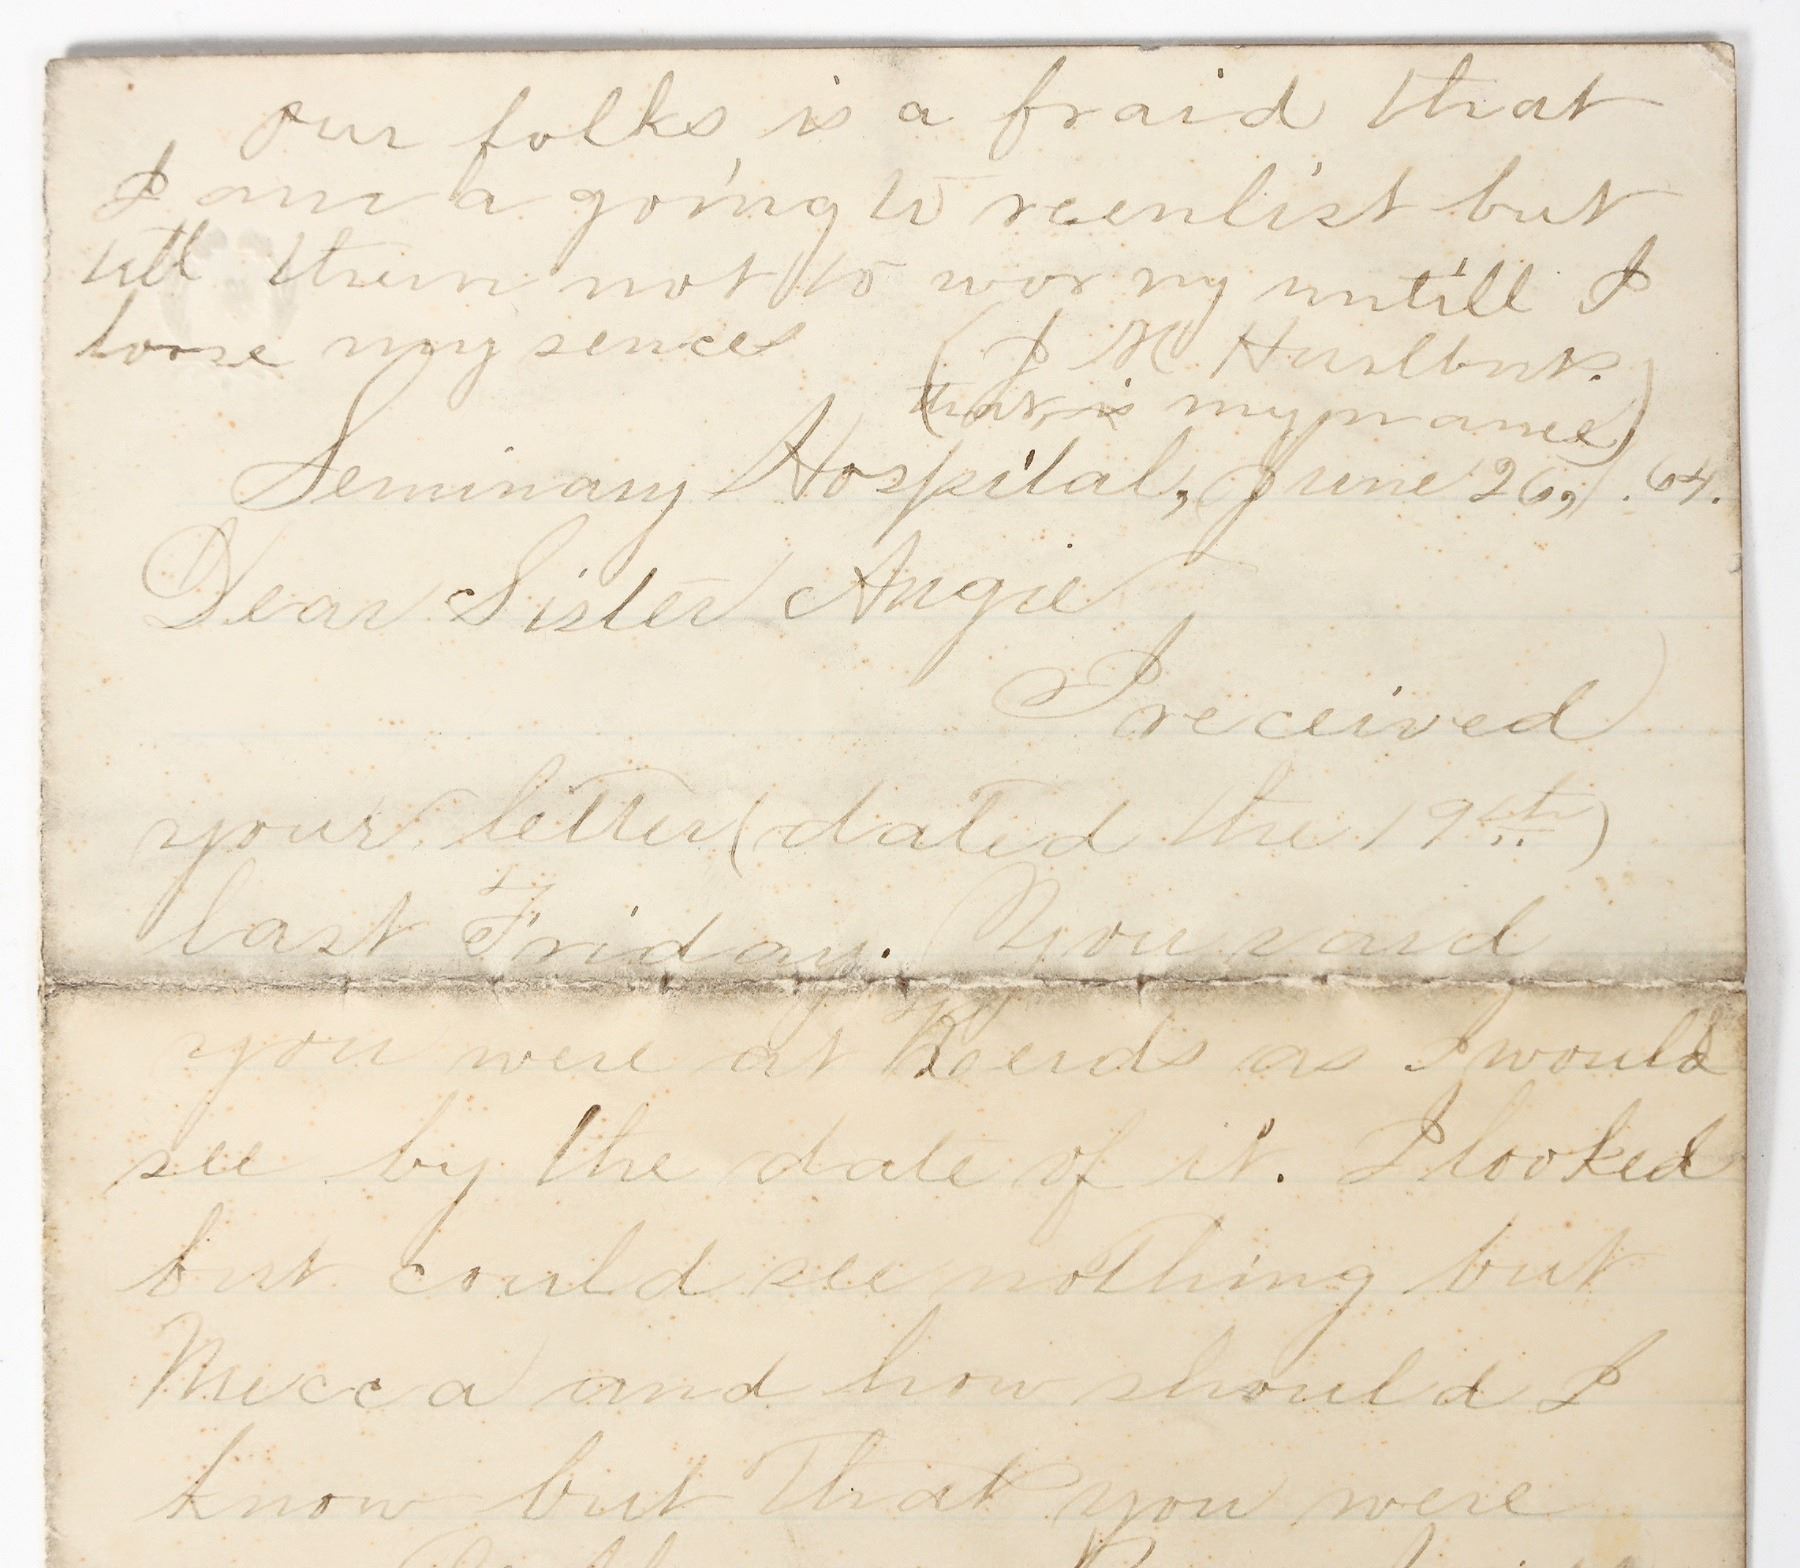 our folks is a fraid that
I am a going to reenlist but
tell them not to wor ry untill I
loose my sences (J H Hurlbut.
that is my name)
Seminary Hospital, June 26, . 64.
Dear Sister Angie
I received
your letter (dated the 19th)
last Friday. You said
you were at as I would
see by the date of it. I looked
but could see nothing but
Mecca and how should I
know but that you were